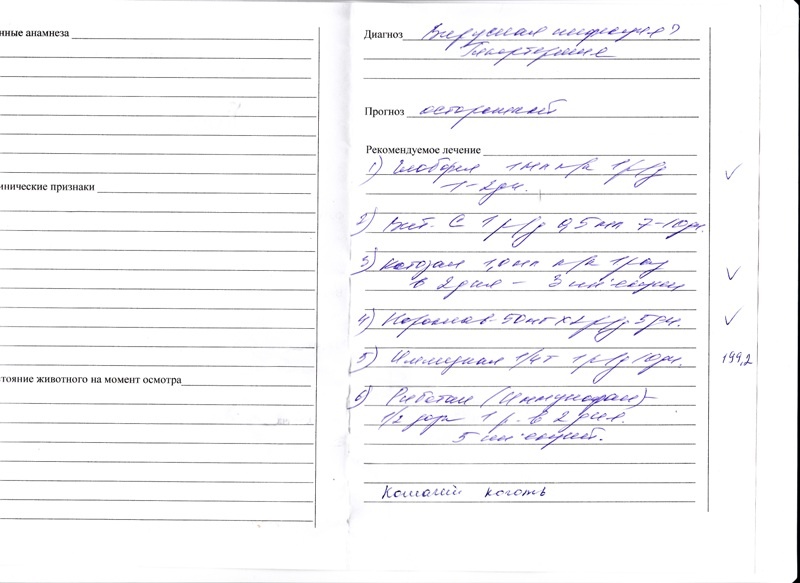 нные анамнеза
инические признаки
стояние животного на момент осмотра
Диагноз Вирусная инфекция?
Гипертермия
Прогноз осторожный
Рекомендуемое лечение
1) Глобфел 1 мл п/к 1 р/д
1-2 дн.
2) Вит. С 1 р/д 0,5 мл 7-10 дн.
3) Катозал 1,0 мл п/к 1 раз
в 2 дня - 3 инъекции
4) 50 мг х 2 р/д 5 дн.
199,2
5) 1/4 т 1 р/д 10 дн.
6) Риботан (Иммунофан)
1/2 дозы 1 р. в 2 дня.
5 инъекций.
Кошачий коготь